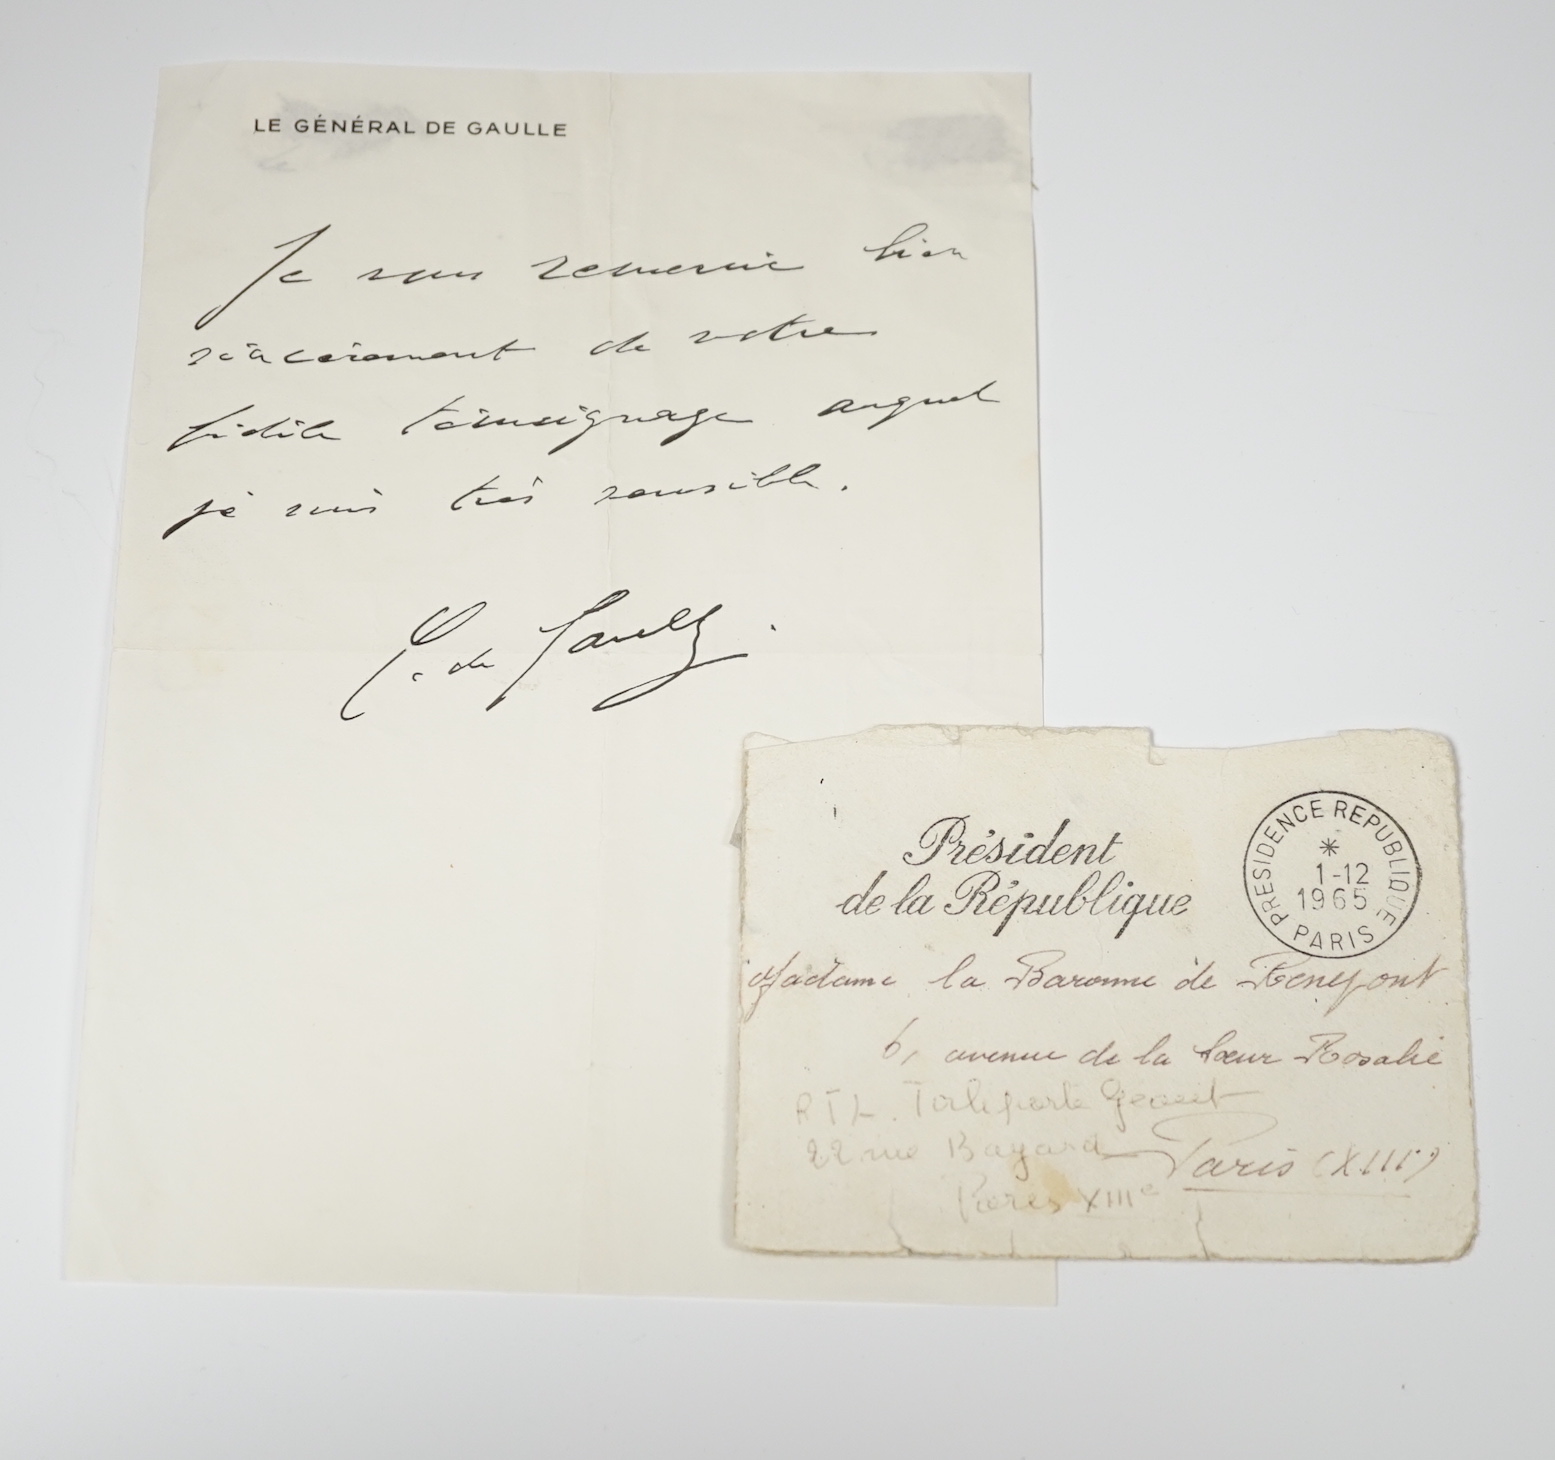 LE GÉNÉRAL DE GAULLE
Je vous remercie bien
sincèrement de votre
fidèle témoignage auquel
je suis très sensible.
C. de Gaulle.
Président
de la République
PRESIDENCE REPUBLIQUE
1-12
1965
PARIS
Madame la Baronne de
6, avenue de la Soeur Rosalie
RTL.
22 rue Bayard
Paris (XIII)
Paris XIIIe